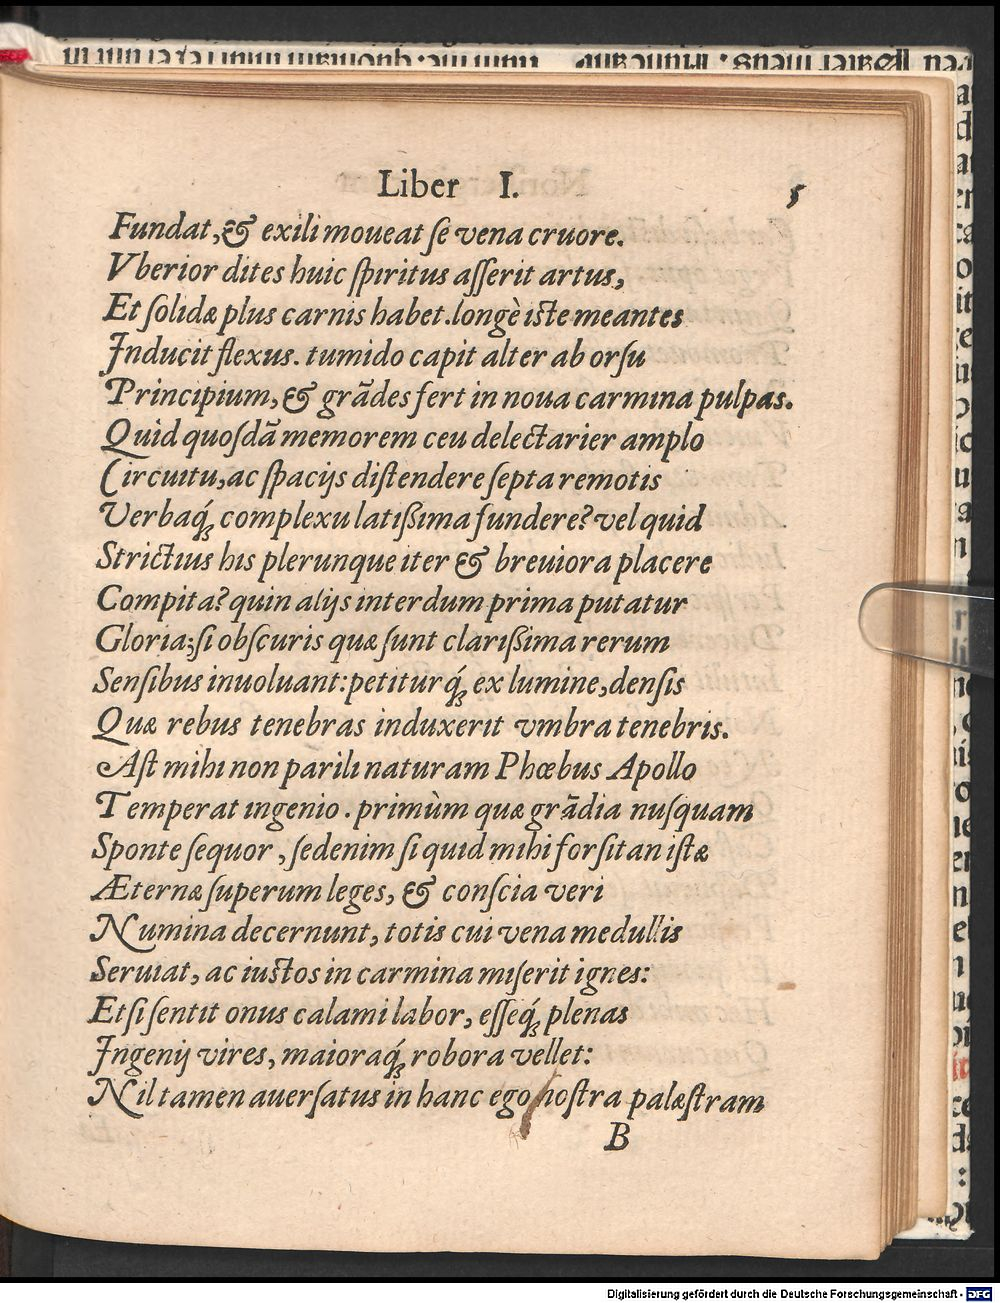 Liber I. 5
Fundat, & exili moueat se vena cruore.
Vberior dites huic spiritus asserit artus,
Et solidæ plus carnis habet. longè iste meantes
Inducit flexus. tumido capit alter ab orsu
Principium, & grādes fert in noua carmina pulpas.
Quid quosdā memorem ceu delectarier amplo
Circuitu, ac spacijs distendere septa remotis
Verbaq́; complexu latißima fundere? vel quid
Strictius his plerunque iter & breuiora placere
Compita? quin alijs interdum prima putatur
Gloria; si obscuris quæ sunt clarißima rerum
Sensibus inuoluant: petiturq́; ex lumine, densis
Quæ rebus tenebras induxerit vmbra tenebris.
Ast mihi non parili naturam Phœbus Apollo
Temperat ingenio. primùm quæ grādia nusquam
Sponte sequor, sed enim si quid mihi forsitan istæ
Æternæ superum leges, & conscia veri
Numina decernunt, totis cui vena medullis
Seruiat, ac iustos in carmina miserit ignes:
Et si sentit onus calami labor, esseq́; plenas
Ingenij vires, maioraq́; robora vellet:
Nil tamen auersatus in hanc ego nostra palæstram
B
Digitalisierung gefördert durch die Deutsche Forschungsgemeinschaft - DFG